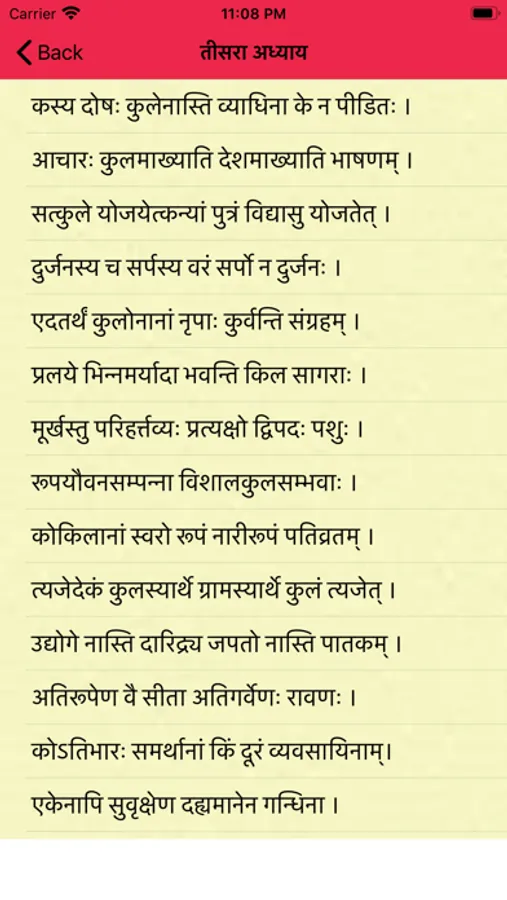 Carrier 11:08 PM
Back तीसरा अध्याय
कस्य दोषः कुलेनास्ति व्याधिना के न पीडितः ।
आचारः कुलमाख्याति देशमाख्याति भाषणम् ।
सत्कुले योजयेत्कन्यां पुत्रं विद्यासु योजतेत् ।
दुर्जनस्य च सर्पस्य वरं सर्पो न दुर्जनः ।
एदतर्थं कुलोनानां नृपाः कुर्वन्ति संग्रहम् ।
प्रलये भिन्नमर्यादा भवन्ति किल सागराः ।
मूर्खस्तु परिहर्त्तव्यः प्रत्यक्षो द्विपदः पशुः ।
रूपयौवनसम्पन्ना विशालकुलसम्भवाः ।
कोकिलानां स्वरो रूपं नारीरूपं पतिव्रतम् ।
त्यजेदेकं कुलस्यार्थे ग्रामस्यार्थे कुलं त्यजेत् ।
उद्योगे नास्ति दारिद्र्य जपतो नास्ति पातकम् ।
अतिरूपेण वै सीता अतिगर्वेणः रावणः ।
कोऽतिभारः समर्थानां किं दूरं व्यवसायिनाम्।
एकेनापि सुवृक्षेण दह्यमानेन गन्धिना ।